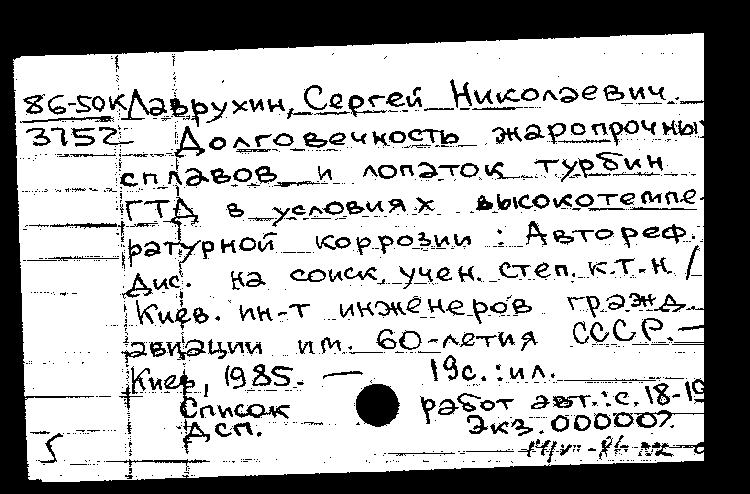 86-50к Лаврухин, Сергей Николаевич.
3752 Долговечность жаропрочных
сплавов и лопаток турбин
ГТД в условиях высокотемпе-
ратурной коррозии : Автореф.
Дис. на соиск. учен. степ. к.т.н /
Киев. ин-т инженеров гражд.
авиации им. 60-летия СССР. —
Киев, 1985. — 19с. : ил.
Список работ авт.: с. 18-19
Дсп. Экз. 000007.